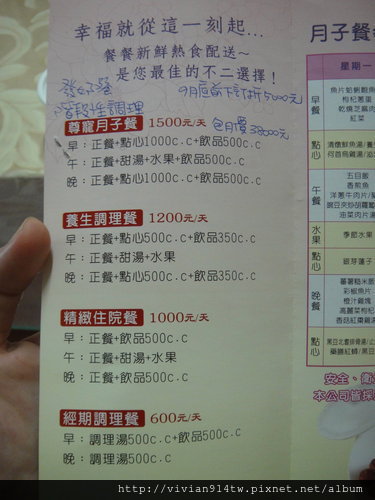 幸福就從這一刻起...
餐餐新鮮熱食配送~
是您最佳的不二選擇！
9月底前下訂折5000元
階段性調理
尊寵月子餐 1500元/天 包月價38000元
早：正餐+點心1000c.c+飲品500c.c
午：正餐+甜湯+水果+飲品500c.c
晚：正餐+點心1000c.c+飲品500c.c
養生調理餐 1200元/天
早：正餐+點心500c.c+飲品350c.c
午：正餐+甜湯+水果
晚：正餐+點心500c.c+飲品350c.c
精緻住院餐 1000元/天
早：正餐+飲品500c.c
午：正餐+甜湯+水果
晚：正餐+飲品500c.c
經期調理餐 600元/天
早：調理湯500c.c+飲品500c.c
晚：調理湯500c.c
月子餐
星期一
早餐
魚片蛤蜊
枸杞蛋
乾燒芝麻
紅菜
點心
清燉鮮魚湯
何首烏雞湯
午餐
五目郎
香煎魚
洋蔥牛肉片
豌豆夾炒胡蘿蔔
油菜肉片湯
水果
季節水果
點心
銀芽蓮子
晚餐
蕃薯糙米飯
彩椒魚片
橙汁雞塊
高麗菜枸杞
香菇紅棗雞湯
點心
安全、衛
本公司皆採
http://vivian914tw.pixnet.net/album